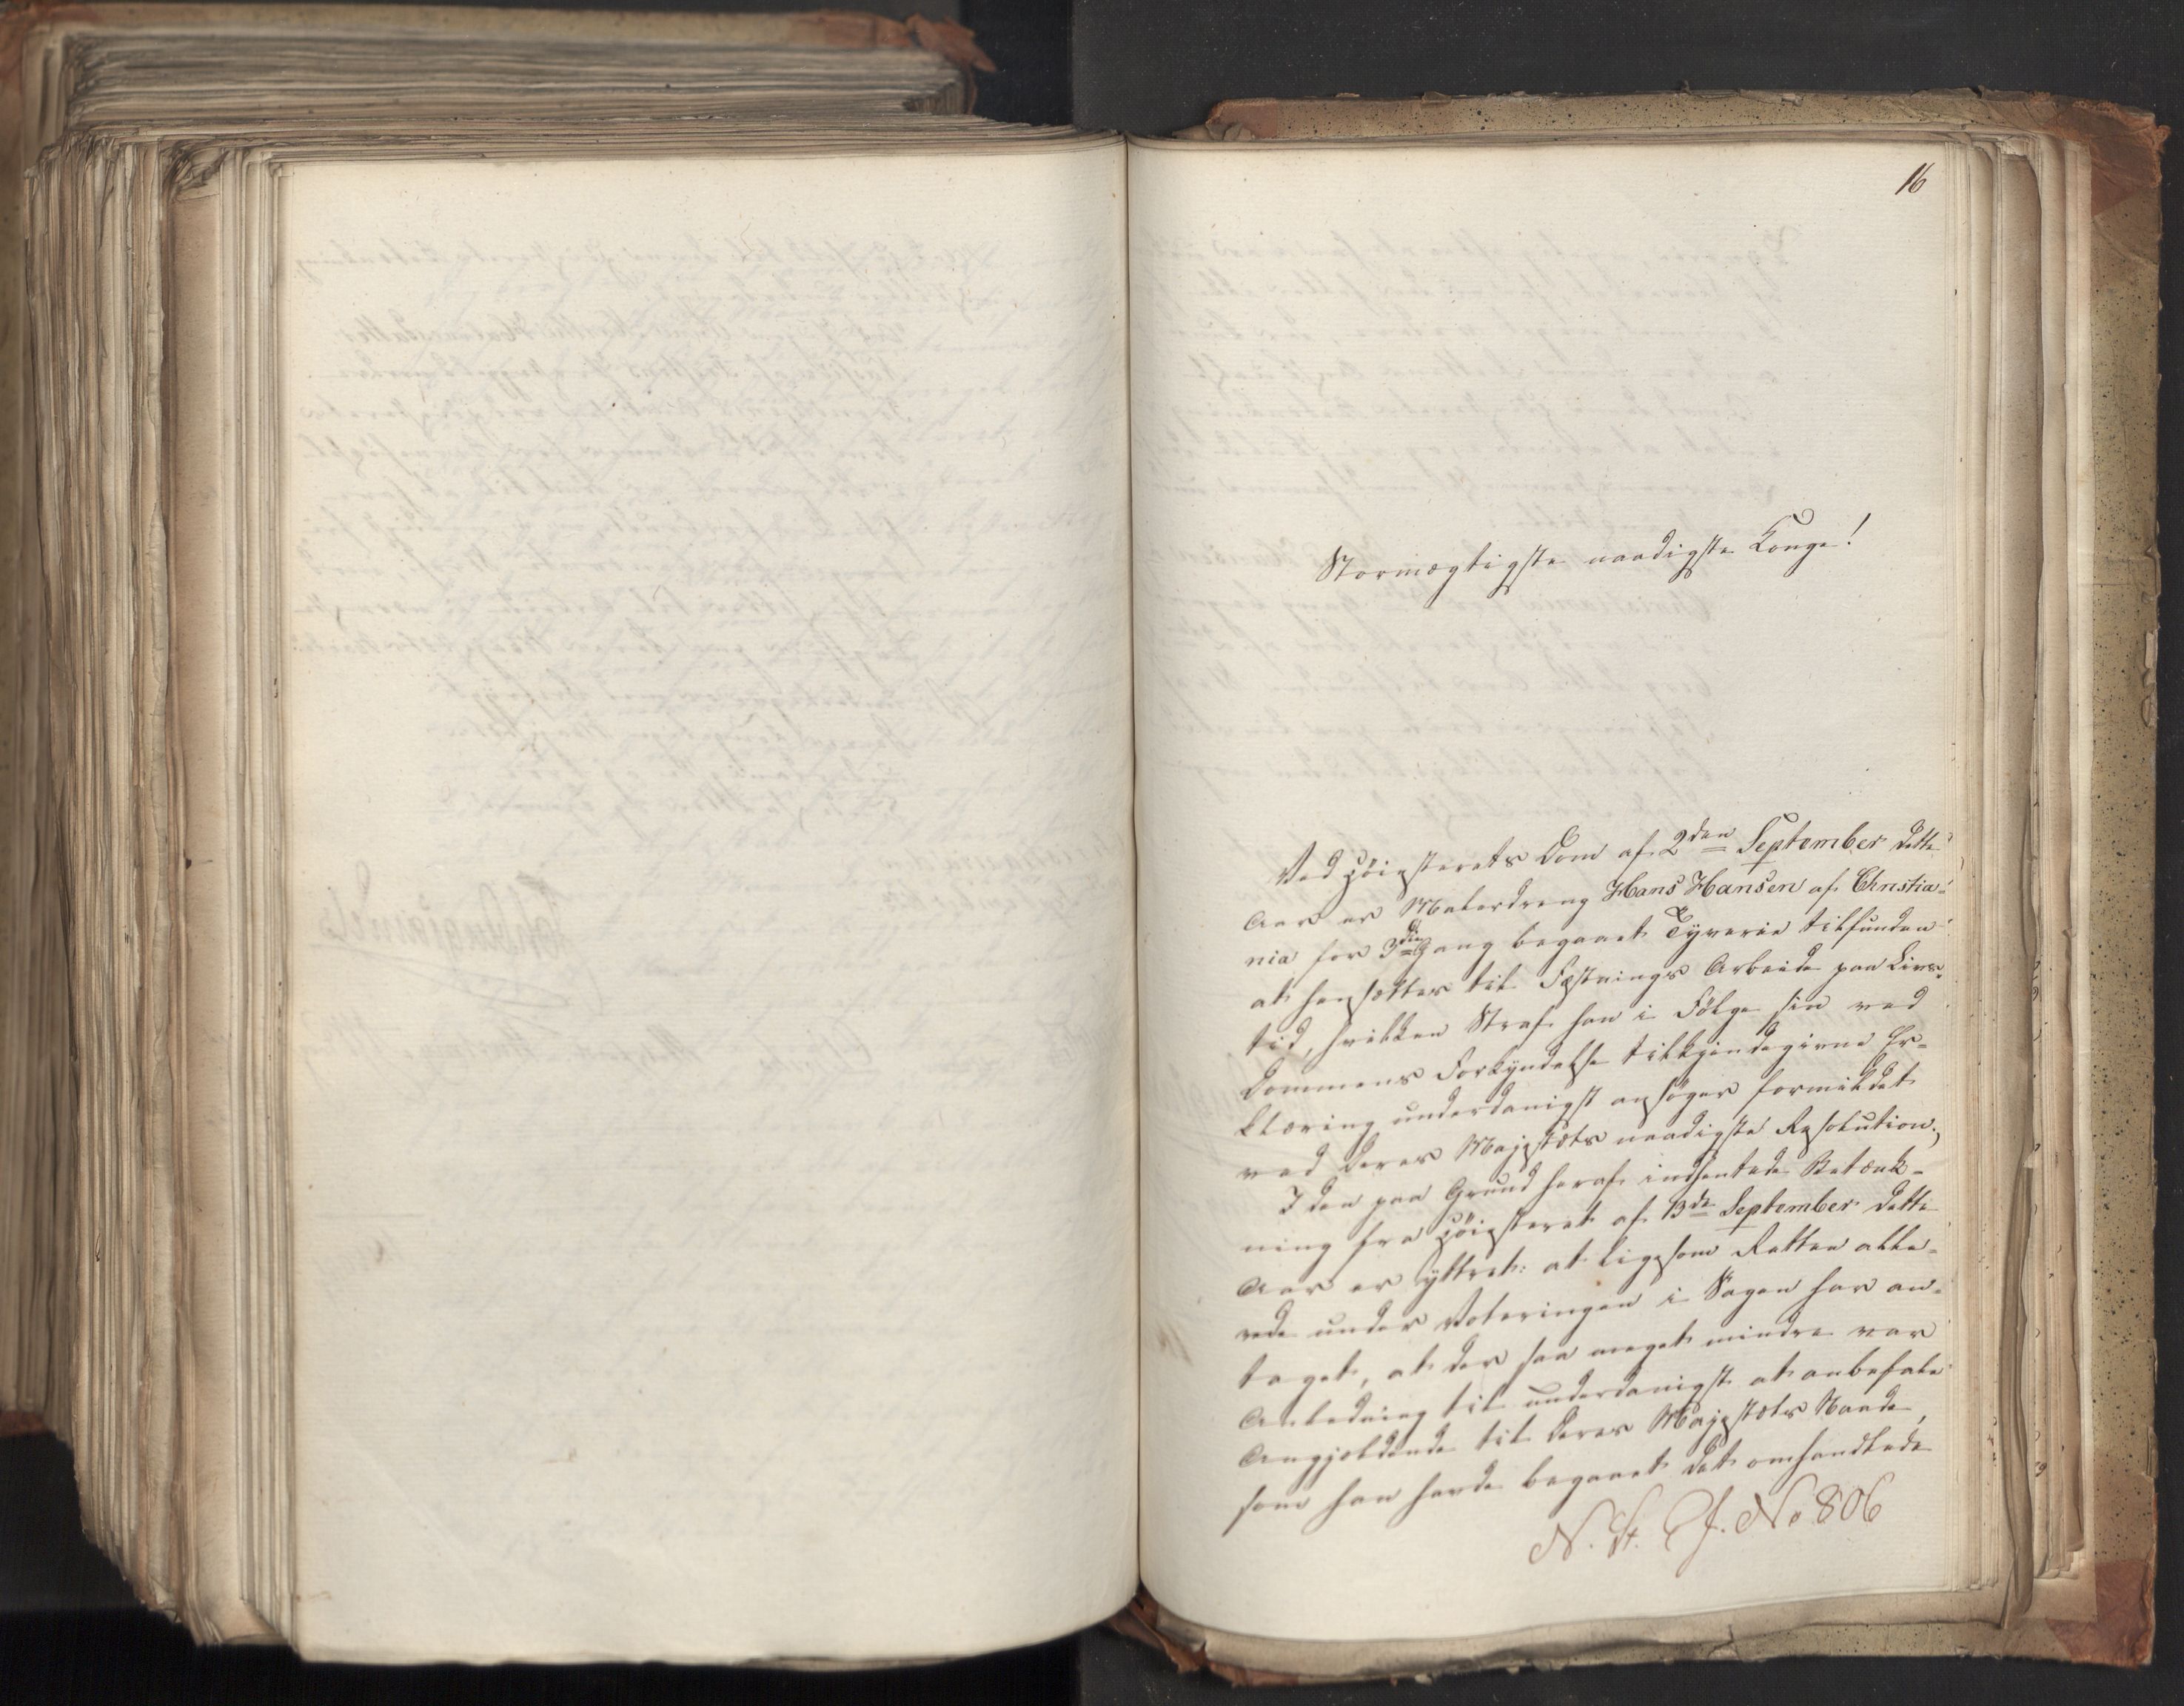 16
Stormægtigste naadigste Konge!
Ved Höiesterets Dom af 2den September dette
Aar er Malerdreng Hans Hansen af Christia-
nia for 3die Gang begaaet Tyverie tilfunden
at hensættes til Fæstnings Arbeide paa Livs-
tid, hvilken Straf han i Fölge sin ved
Dommens Forkyndelse tilkjendegivne Er-
klæring underdanigst ansöger formildet
ved Deres Majestæts naadigste Resolution.
I den paa Grund heraf indhentede Betænk-
ning fra Höiesteret af 13de September dette
Aar er yttret: at ligesom Retten alle-
rede under Voteringen i Sagen har an-
taget, at der saa meget mindre var
Anledning til underdanigst at anbefale
Angjeldende til Deres Majestæts Naade,
som han havde begaaet det omhandlede
N. St. J. No 806